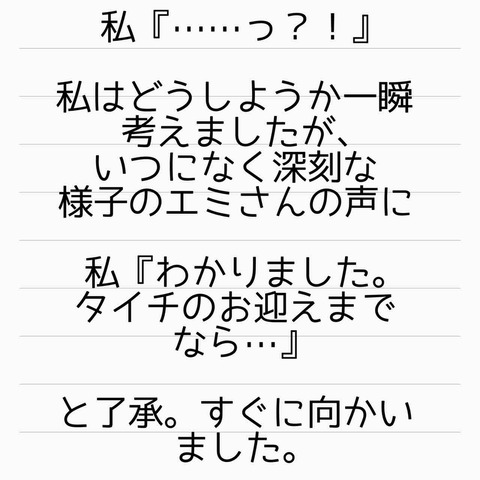 私『……っ？！』
私はどうしようか一瞬
考えましたが、
いつになく深刻な
様子のエミさんの声に
私『わかりました。
タイチのお迎えまで
なら…』
と了承。すぐに向かい
ました。